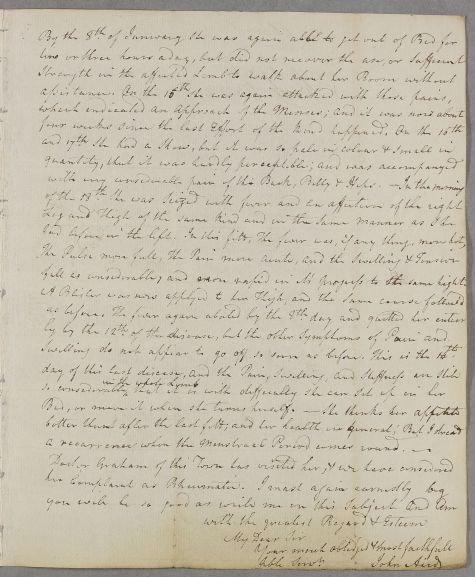 By the 8th of January, She was again able to get out of Bed for
two or three hours a day, but did not recover the use, or Sufficient
Strength in the affected Limb to walk about her Room without
assistance. On the 15th She was again attacked with those pains,
which indicated an Approach of the Menses; and it was now about
four weeks since the last Effort of the kind happened. On the 16th
and 17th She had a Shew, but it was so pale in colour & small in
quantity, that it was hardly perceptible; and was accompanyed
with very considerable pain of the Back, Belly & Hips. — In the morning
of the 18th She was seized with fever and an affection of the right
Leg and Thigh of the same kind and in the same manner as She
had before in the left. In this fitt, The fever was, if any thing, more hot,
The Pulse more full, the Pain more acute, and the Swelling & Tension
full as considerable, and more rapid in its progress to the same hight.
A Blister was now applyed to her Thigh, and the same course followed
as before. The fever again abated by the 8th day and quitted her entire-
ly by the 12th of the disease, but the other Symptoms of Pain and
Swelling do not appear to go off so soon as before. This is the 16th
day of this last disease, and the Pain, Swelling, and Stiffness are still
so considerable that it is with difficulty She can set up in her
with the whole Limb
Bed, or move it when she turns herself. — She thinks her appetite
better than after the last fitt, and her health in general; But I dread
a recurrence when the Menstrual Period comes round. —
Doctor Graham of this Town has visited her, & we have considered
her Complaint as Rheumatic. I must again earnestly beg
you will be so good as write me on this Subject. And I am
with the greatest Regard & Esteem
My Dear Sir
Your much obliged & most faithfull
Hble Servt
John Aird